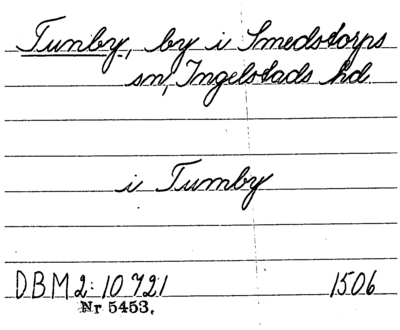 Tunby, by i Smedstorps
sn, Ingelstads hd.
i Tumby
DBM 2: 10 721 1506
Nr 5453.